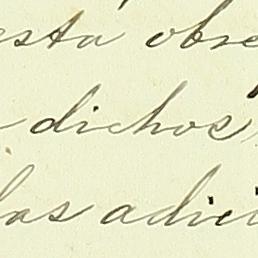 esta obre
dichos
las adici